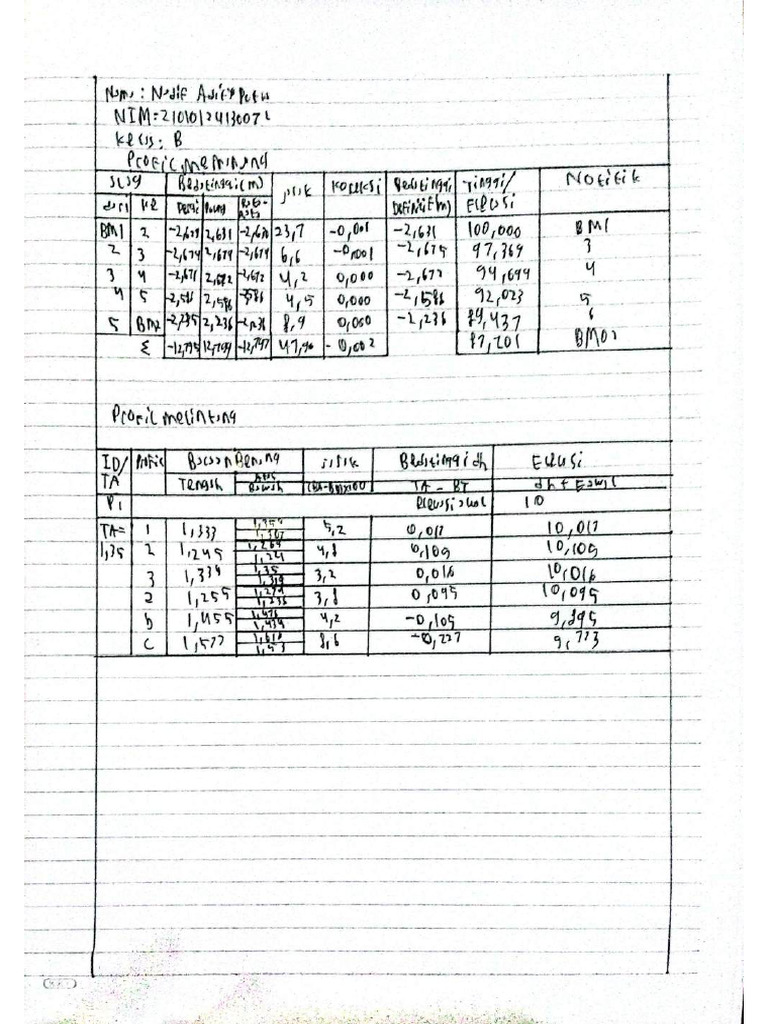 Nama : Nadif Aditya Putra
NIM = 21010124130072
Kelas : B
Profil memanjang
Slag Bedatinggi (m) jarak Koreksi Bedatinggi Tinggi/ Notitik
dari ke Pergi Pulang Rata-rata Definitif (m) Elevasi
BM1 2 2,631 23,7 -0,001 -2,631 100,000 BM1
2 3 -2,674 2,674 -2,674 6,6 -0,001 -2,675 97,369 3
3 4 -2,671 2,672 -2,672 4,2 0,000 -2,672 94,694 4
4 5 -2,586 2,586 4,5 0,000 -2,586 92,023 5
5 BM2 2,236 8,9 0,000 -2,236 89,437 6
Σ -0,002 87,201
Profil melintang
ID/ Profil Bacaan Benang jarak Bedatinggi dh Elevasi
TA Tengah Atas Bawah (BA-BB)x100 TA - BT dh + E awal
P1 Elevasi awal 10
TA= 1 1,333 5,2 0,017 10,017
1,35 2 1,245 1,269 1,221 4,8 0,105 10,105
3 1,334 1,35 3,2 0,016 10,016
a 1,255 1,274 1,236 3,8 0,095 10,095
b 1,455 1,476 1,434 4,2 -0,105 9,895
c 1,577 8,6 -0,227 9,773